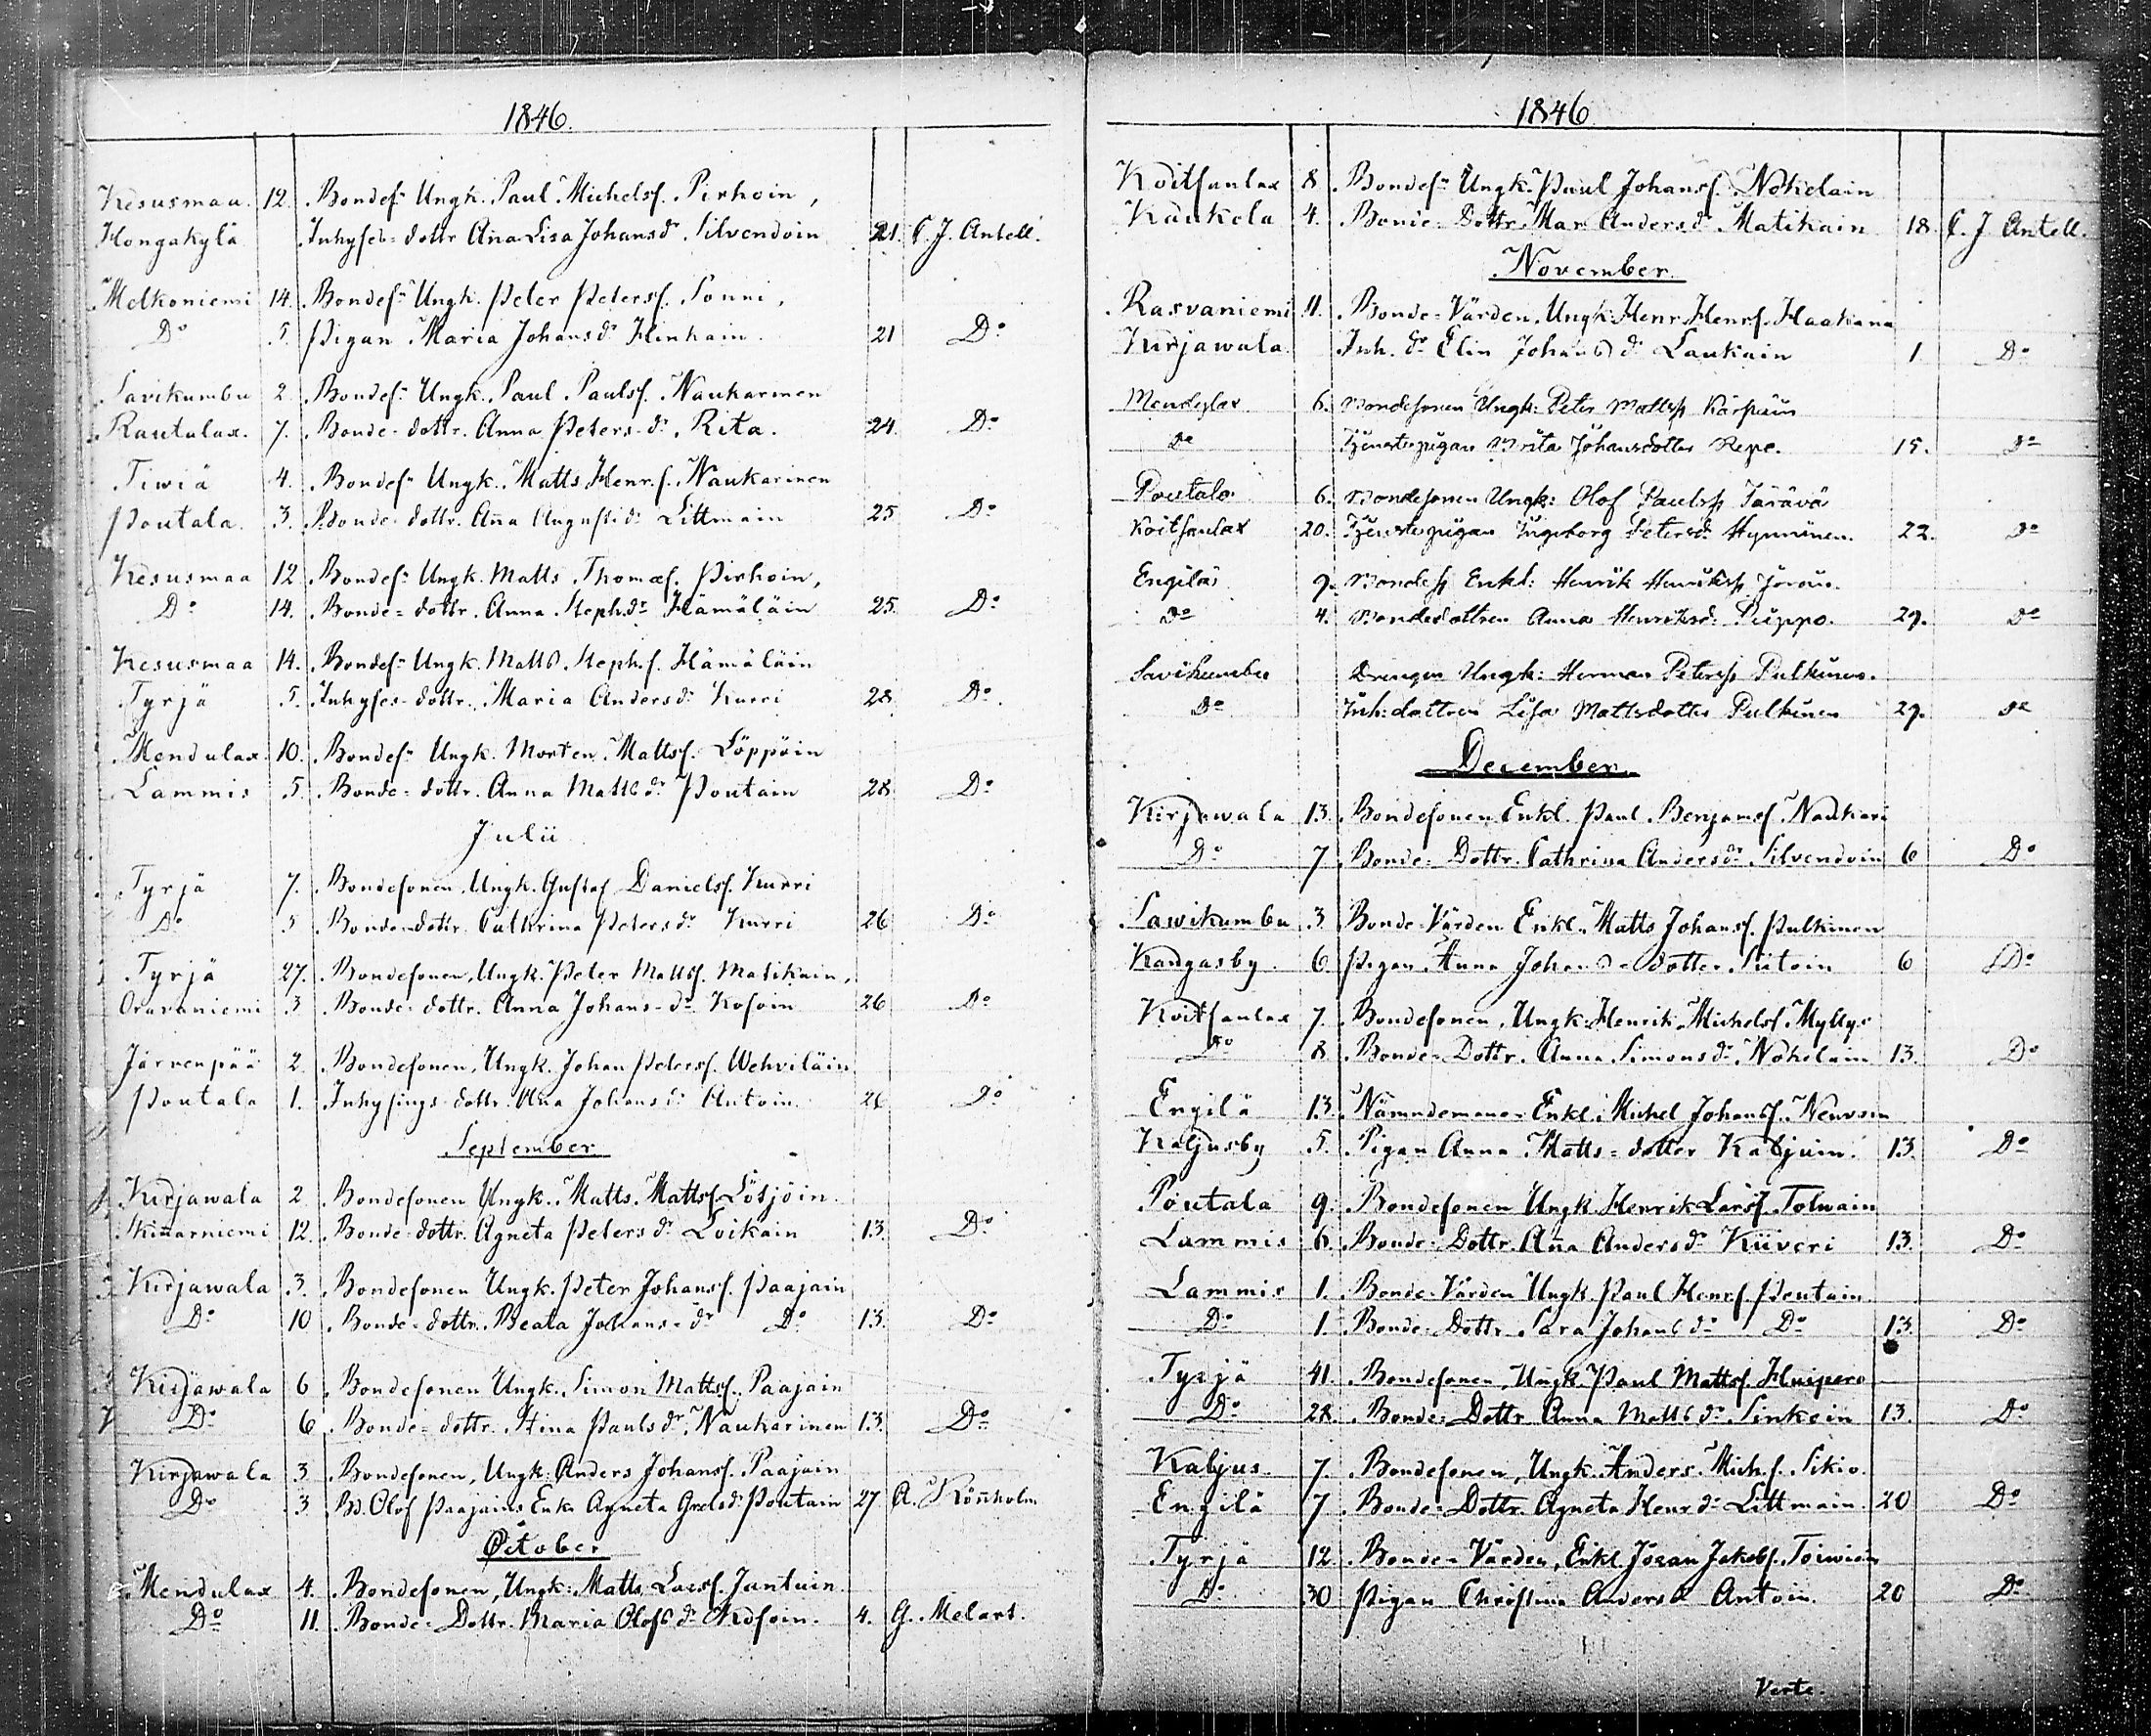 1846.
Kesusmaa. 12. Bondes. Ungk. Paul Michelsf. Pirhoin,
Hongakylä Inhyses-dottr Aña Lisa Johansdr. Silvendoin 21. C. J. Antell.
Melkoniemi 14. Bondes. Ungk. Peter Petersf. Sonni.
Do 5. Pigan Maria Johansdr Hinkain 21 Do
Savikumbu 2. Bondes. Ungk. Paul Paulsf. Naukarinen
Rautalax. 7. Bonde-dottr. Anna Peters-dr. Rita. 24. Do
Tiwiä 4. Bondes. Ungk. Matts Henr.f. Naukarinen
Poutala. 3. Bonde-dottr. Aña Augustidr Littmain 25 Do
Kesusmaa 12 Bondes. Ungk. Matts Thomæf. Pirhoin,
Do 14. Bonde-dottr. Anna Stephdr Hämäläin 25. Do
Kesusmaa 14. Bondes. Ungk. Matts Steph.f. Hämäläin
Tyrjä 5. Inhyses-dottr. Maria Andersdr Kurri 28 Do.
Mendulax. 10. Bondes. Ungk. Morten Mattsf. Löppöin
Lammis 5. Bonde-dottr. Anna Mattsdr Poutain 28 Do
Julii
Tyrjä 7. Bondesonen, Ungk. Gustaf Danielsf. Kurri
Do 5 Bonde-dottr. Cathrina Petersdr Kurri 26 Do
Tyrjä 27. Bondesonen, Ungk. Peter Mattsf. Matikain,
Oravaniemi 3 Bonde-dottr. Anna Johans-dr Kosoin 26 Do
Järvenpää 2. Bondesonen, Ungk. Johan Petersf. Wehviläin
Poutala 1. Inhysings-dottr. Aña Johansdr Antoin. 26 Do
September
Kirjawala 2 Bondesonen Ungk. Matts Mattsf. Lötjöin.
Kiñarniemi 12. Bonde-dottr. Agneta Petersdr Loikain 13. Do
Kirjawala 3. Bondesonen Ungk. Peter Johansf. Paajain
Do 10 Bonde-dottr. Beata Johans-dr Do 13. Do
Kirjawala 6 Bondesonen Ungk. Simon Mattsf. Paajain
Do 6 Bonde-dottr. Stina Paulsdr. Naukarinen 13. Do
Kirjawala 3 Bondesonen, Ungk: Anders Johansf. Paajain
Do 3 Bd. Olof Paajains Enka Agneta Grelsdr Poutain 27 A. Röñholm
October
Mendulax 4. Bondesonen, Ungk: Matts Larsf. Juntuin.
Do 11. Bonde-Dottr. Maria Olofsdr Kosoin. 4. G. Melart.
1846
Koitsanlax 8 Bondes. Ungk. Paul Johansf. Nokelain
Kaukola 4. Bonde-Dottr. Mar. Anders.dr Matikain 18. C. J. Antell.
November.
Rasvaniemi 11. Bonde-Värden, Ungk: Henr. Henrf. Haakana
Kirjawala Inh. dr Elin Johansdr Laukain 1. Do
Mendulax 6. Bondesonen Ungk: Peter Mattsf. Karpain
Do Tjenstepigan Brita Johansdotter Repo. 15. Do
Poutala 6. Bondesonen Ungk: Olof Paulsf. Järävä
Koitsanlax 20. Tjenstepigan Ingeborg Petersd. Hynninen. 22. Do
Engilä 9. Bondes. Enkl: Henrik Henriksf. Joroin.
Do 4. Bondedottren Anna Henriksd: Puppo. 29. Do
Savikumbu Drengen Ungk: Herman Petersf. Pulkinen.
Do Inh:dottren Lisa Mattsdotter Pulkinen 29. Do
December.
Kirjawala 13. Bondesonen Enkl. Paul Benjamsf. Naukari
Do 7 Bonde-Dottr. Cathrina Andersdr. Silvendoin 6 Do
Sawikumbu 3 Bonde-Värden Enkl. Matts Johansf. Pulkinen
Kangasby 6 Pigan Anna Johans-dotter Siitoin 6 Do
Koitsanlax 7. Bondesonen, Ungk: Henrik Michelsf. Myllys
Do 8 Bonde-Dottr. Anna Simonsdr. Nokelain 13. Do
Engilä 13. Nämndeman Enkl. Michel Johansf. Neuvoin
Kaljusby 5. Pigan Anna Matts-dotter Kaljuin. 13. Do
Poutala 9. Bondesonen Ungk. Henrik Larsf. Tolwain
Lammis 6. Bonde-Dottr. Aña Andersdr Kiiveri 13. Do
Lammis 1. Bonde-Värden Ungk. Paul Henrsf. Poutain
Do 1. Bonde-Dottr. Sara Johansdr Do 13. Do
Tyrjä 41. Bondesonen, Ungk. Paul Mattsf. Huipero
Do 28. Bonde-Dottr Anna Mattsdr Sinkoin 13. Do
Kaljus. 7. Bondesonen, Ungk. Anders Mich.f. Sikio.
Engilä 7 Bonde-Dottr. Agneta Henrdr Littmain. 20 Do
Tyrjä 12 Bonde-Värden, Enkl. Jöran Jakobf. Toiwion
Do 30 Pigan Christina Andersd Antoin. 20 Do
Verte.